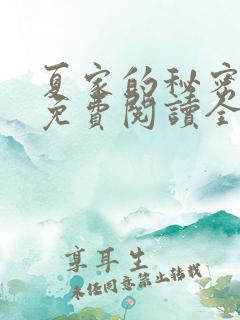 夏家的秘密
免費閱讀全
享耳生
未经同意禁止转载